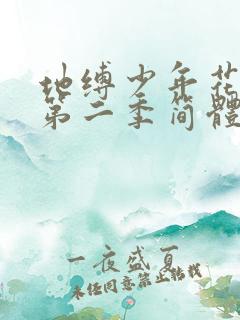 地缚少年花
第二季简體
一夜盛夏
未经同意禁止转载